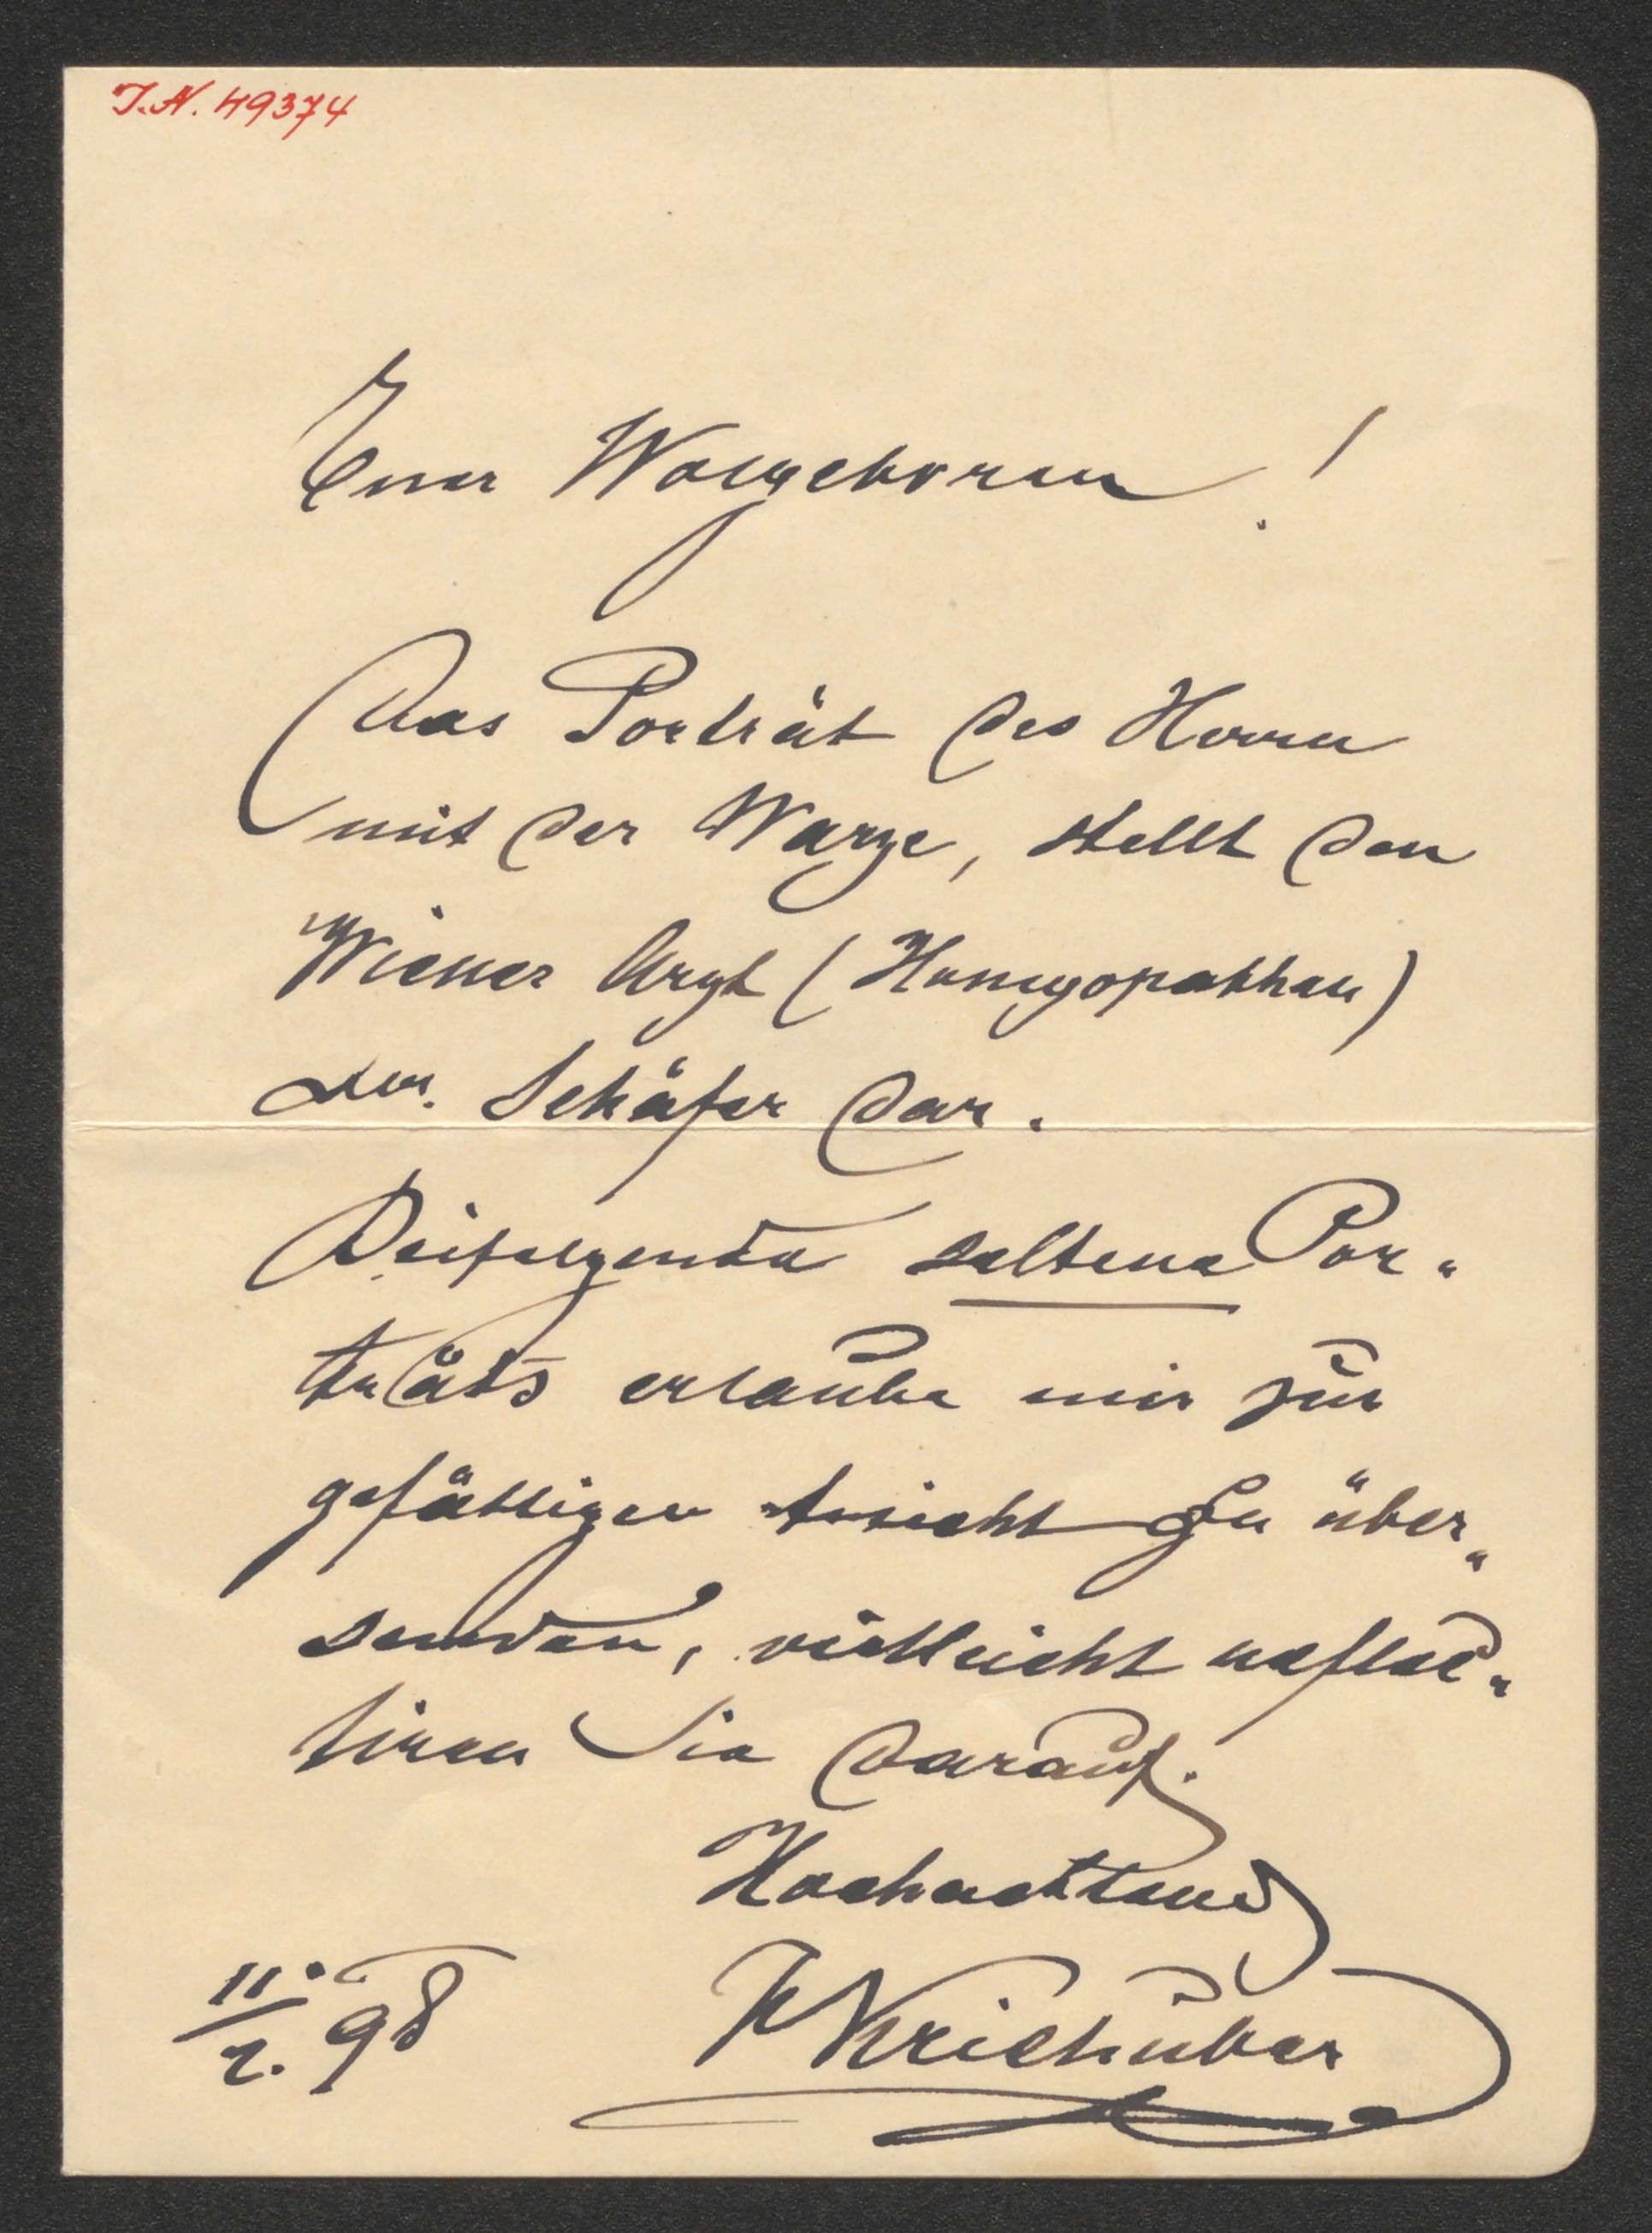 I.N. 49374
Euer Wolgeboren!
Das Porträt des Herrn
mit der Warze, stellt den
Wiener Arzt (Homöopathen)
Dr. Schäfer dar.
Beifolgende seltene Por„
träts erlaube mir zur
gefälligen Ansicht zu über„
senden, vielleicht reflec„
tiren Sie darauf.
Hochachtend
Kriehuber
11./2. 98